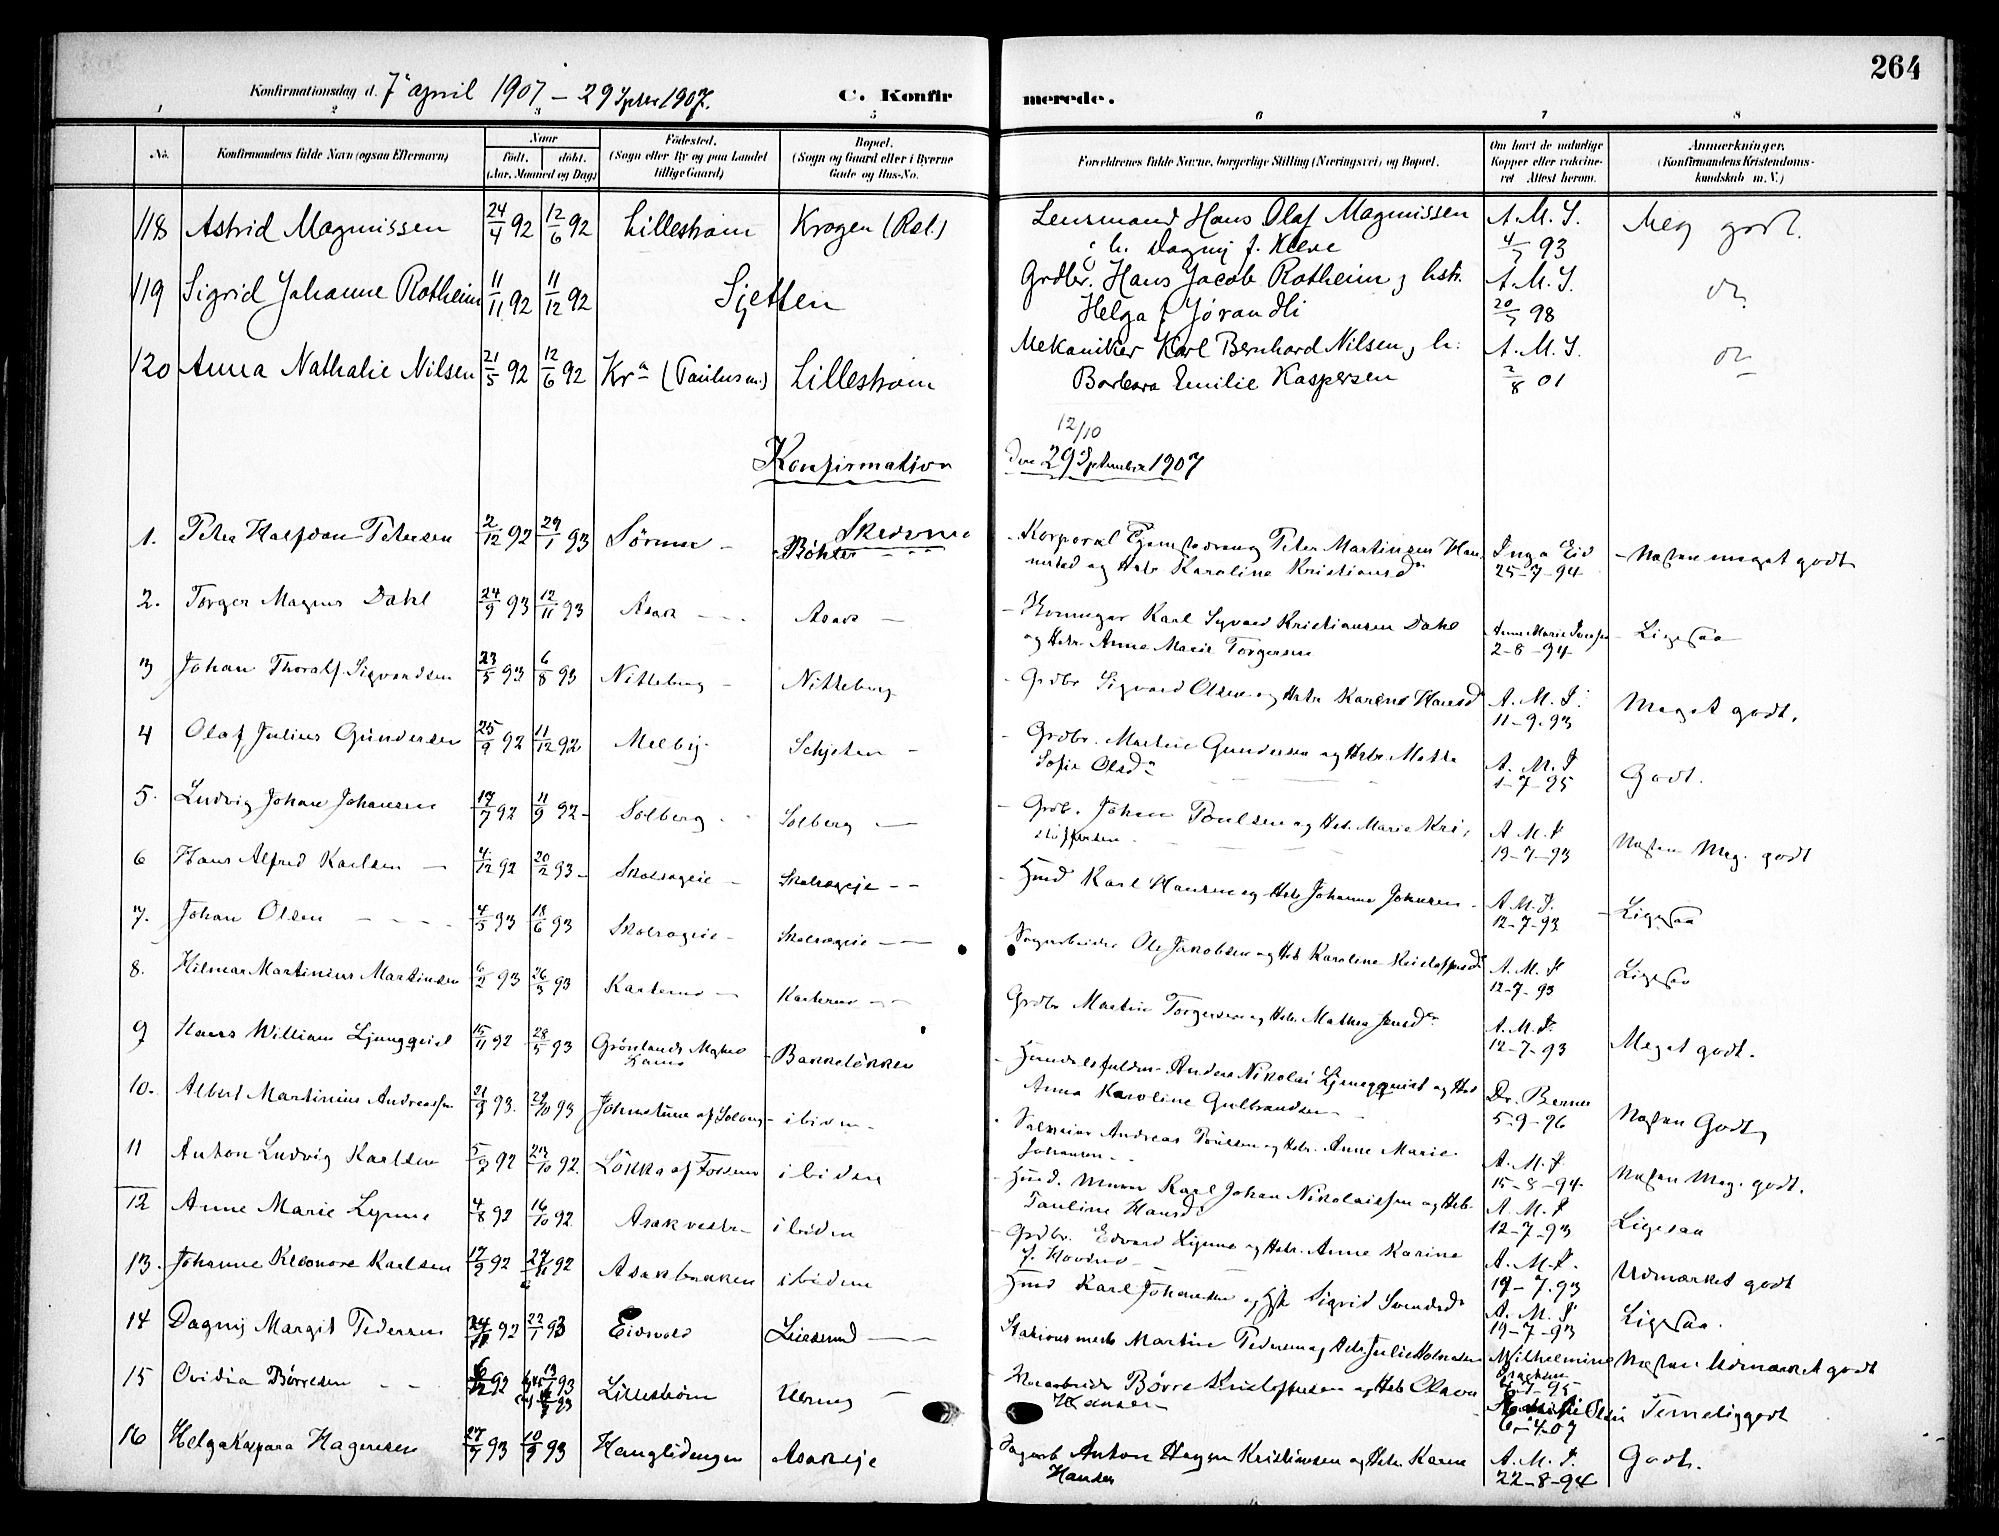 264
Konfirmationsdag d. 7 april 1907 – 29 Septbr 1907.
C. Konfirmerede.
1 2 3 5 6 7 8
No.
Konfirmandens fulde Navn (ogsaa Efternavn)
Naar
født. døbt.
(Aar, Maaned og Dag)
Fødested.
(Sogn eller By og paa Landet
tillige Gaard)
Bopæl.
(Sogn og Gaard eller i Byerne
Gade og Hus-No.
Forældrenes fulde Navne, borgerlige Stilling (Næringsvei) og Bopæl.
Om havt de naturlige
Kopper eller vakcine-
ret Attest herom.
Anmærkninger.
(Konfirmandens Kristendoms-
kundskab m. V.)
118 Astrid Magnussen 24/4 92 12/6 92 Lillestrøm Krogen (Ral.) Lensmand Hans Olaf Magnussen A. M. I. Meg godt.
h. Dagny f. 4/7 93
119 Sigrid Johanne Rotheim 11/11 92 11/12 92 Sjetten Grdbr. Hans Jacob Rotheim og hstr. A. M. I. do
Helga f. Jørandli 20/7 98
120 Anna Nathalie Nilsen 21/5 92 12/6 92 Kr.a (Paulus m.) Lillestrøm Mekaniker Karl Bernhard Nilsen, h: A. M. I. do
Barbara Emilie Kaspersen 2/8 01
12/10
Konfirmation den 29 September 1907
Skedsmo
1. Peter Halfdan Petersen 2/12 92 29/1 93 Sørum Bøhler Korporal Peter Martinsen Inga Eid Næsten meget godt
og Hstr Karoline Kristiansd. 25-7-94
2. Torger Magnus Dahl 24/9 93 12/11 93 Asak Asak Karl Sigvard Kristiansen Dahl Anne Marie Ligesaa
og Hstr. Anne Marie Torgersen 2-8-94
3 Johan Thoralf Sigvardsen 23/5 93 6/8 93 Nitteberg Nitteberg Grdbr Sigvard Olsen og Hstr Karen Hansd A. M. I. Meget godt.
11-9-93
4 Olaf Julius Gundersen 25/9 92 11/12 92 Melby Schjetten Grdbr. Martin Gundersen og Hstr. Mathea A. M. I Godt.
Sofie Olsd. 1-7-95
5. Ludvig Johan Johansen 17/7 92 11/9 92 Solberg Solberg Grdb. Johan Poulsen og Hst. Marie Kri- A. M. I Næsten Meg. godt
stoffersen 19-7-93
6 Hans Alfred Karlsen 4/12 92 20/2 93 Skolsageie Skolsageje Hmd Karl Hansen og Hstr Johanne Johnsen A. M. I. Ligesaa
12-7-93
7. Johan Olsen 4/5 93 18/6 93 Skolsageie Skolsageie Ole Jakobsen og Hstr Karoline Kristoffersd. A. M. I Ligesaa
12-7-93
8. Hilmar Martinius Martinsen 6/2 93 26/3 93 Karterud Karterud Grdbr Martin Torgersen og Hstr. Mathea Jensd. A. M. I. Meget godt.
12-7-93
9 Hans William Ljungqvist 15/11 92 28/5 93 Grønlands Bakkeløkken Handelsfuldm. Anders Nikolai Ljungqvist og Hst Dr. Berner Næsten Godt
Anna Karoline Gulbrandsen 5-9-96
10. Albert Martinius Andreassen 21/9 93. 29/10 93 Johnstuen af Solberg ibidem Andreas Poulsen og Hstr. Anne Marie A. M. I Næsten Meg. godt.
Johansen 15-8-94
11 Anton Ludvig Karlsen 5/7 92 23/10 92. Løkka af Folsem ibidem Hmd. Murer Karl Johan Nikolaissen og Hstr. A. M. I Ligesaa
Pauline Hansd. 12-7-93
12 Anne Marie Lynne 4/8 92 16/10 92 Asak vestre ibidem Grdbr. Edvard Lynne og Hstr. Anne Karine A. M. I. Udmærket godt
f. Hovind 19-7-93
13. Johanne Kleonore Karlsen 17/9 92 27/11 92 Asakbakken ibidem Hmd Karl Johansen og Hst Sigrid Svendsd. A. M. I Ligesaa.
19-7-93
14 Dagny Margit Pedersen 24/11 92 22/1 93 Eidsvold Leirsund Stationsmester Martin Pedersen og Hstr. Julie Wilhelmine Næsten Udmærket godt
15 Ovidia Børresen 6/12 92 93 Lillestrøm Børre Kristoffersen og Hstr Olava Temelig godt
Hansen 6-4-07
16 Helga Kaspara Hagensen 27/7 93 10/9 93 Hauglidengen Asakeje Anton Hagen Kristiansen og Hstr. Karen A. M. I. Godt.
Hansen 22-8-94